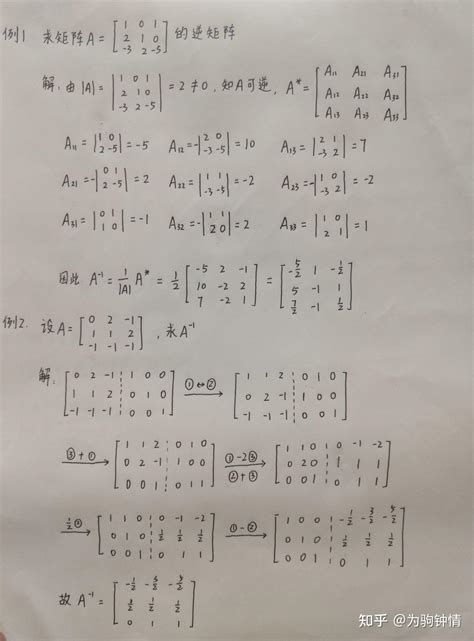 例1 求矩阵A = [1 0 1; 2 1 0; -3 2 -5] 的逆矩阵
解: 由|A| = |1 0 1; 2 1 0; -3 2 -5| = 2 ≠ 0, 知A可逆, A* = [A11 A21 A31; A12 A22 A32; A13 A23 A33]
A11 = |1 0; 2 -5| = -5 A12 = -|2 0; -3 -5| = 10 A13 = |2 1; -3 2| = 7
A21 = -|0 1; 2 -5| = 2 A22 = |1 1; -3 -5| = -2 A23 = -|1 0; -3 2| = -2
A31 = |0 1; 1 0| = -1 A32 = -|1 1; 2 0| = 2 A33 = |1 0; 2 1| = 1
因此 A⁻¹ = 1/|A| A* = 1/2 [-5 2 -1; 10 -2 2; 7 -2 1] = [-5/2 1 -1/2; 5 -1 1; 7/2 -1 1/2]
例2. 设A = [0 2 -1; 1 1 2; -1 -1 -1], 求A⁻¹
解: [0 2 -1 1 0 0; 1 1 2 0 1 0; -1 -1 -1 0 0 1] ①↔② [1 1 2 0 1 0; 0 2 -1 1 0 0; -1 -1 -1 0 0 1]
③+① [1 1 2 0 1 0; 0 2 -1 1 0 0; 0 0 1 0 1 1] ①-2③ ②+③ [1 1 0 0 -1 -2; 0 2 0 1 1 1; 0 0 1 0 1 1]
1/2② [1 1 0 0 -1 -2; 0 1 0 1/2 1/2 1/2; 0 0 1 0 1 1] ①-② [1 0 0 -1/2 -3/2 -5/2; 0 1 0 1/2 1/2 1/2; 0 0 1 0 1 1]
故 A⁻¹ = [-1/2 -3/2 -5/2; 1/2 1/2 1/2; 0 1 1]
知乎 @为驹钟情